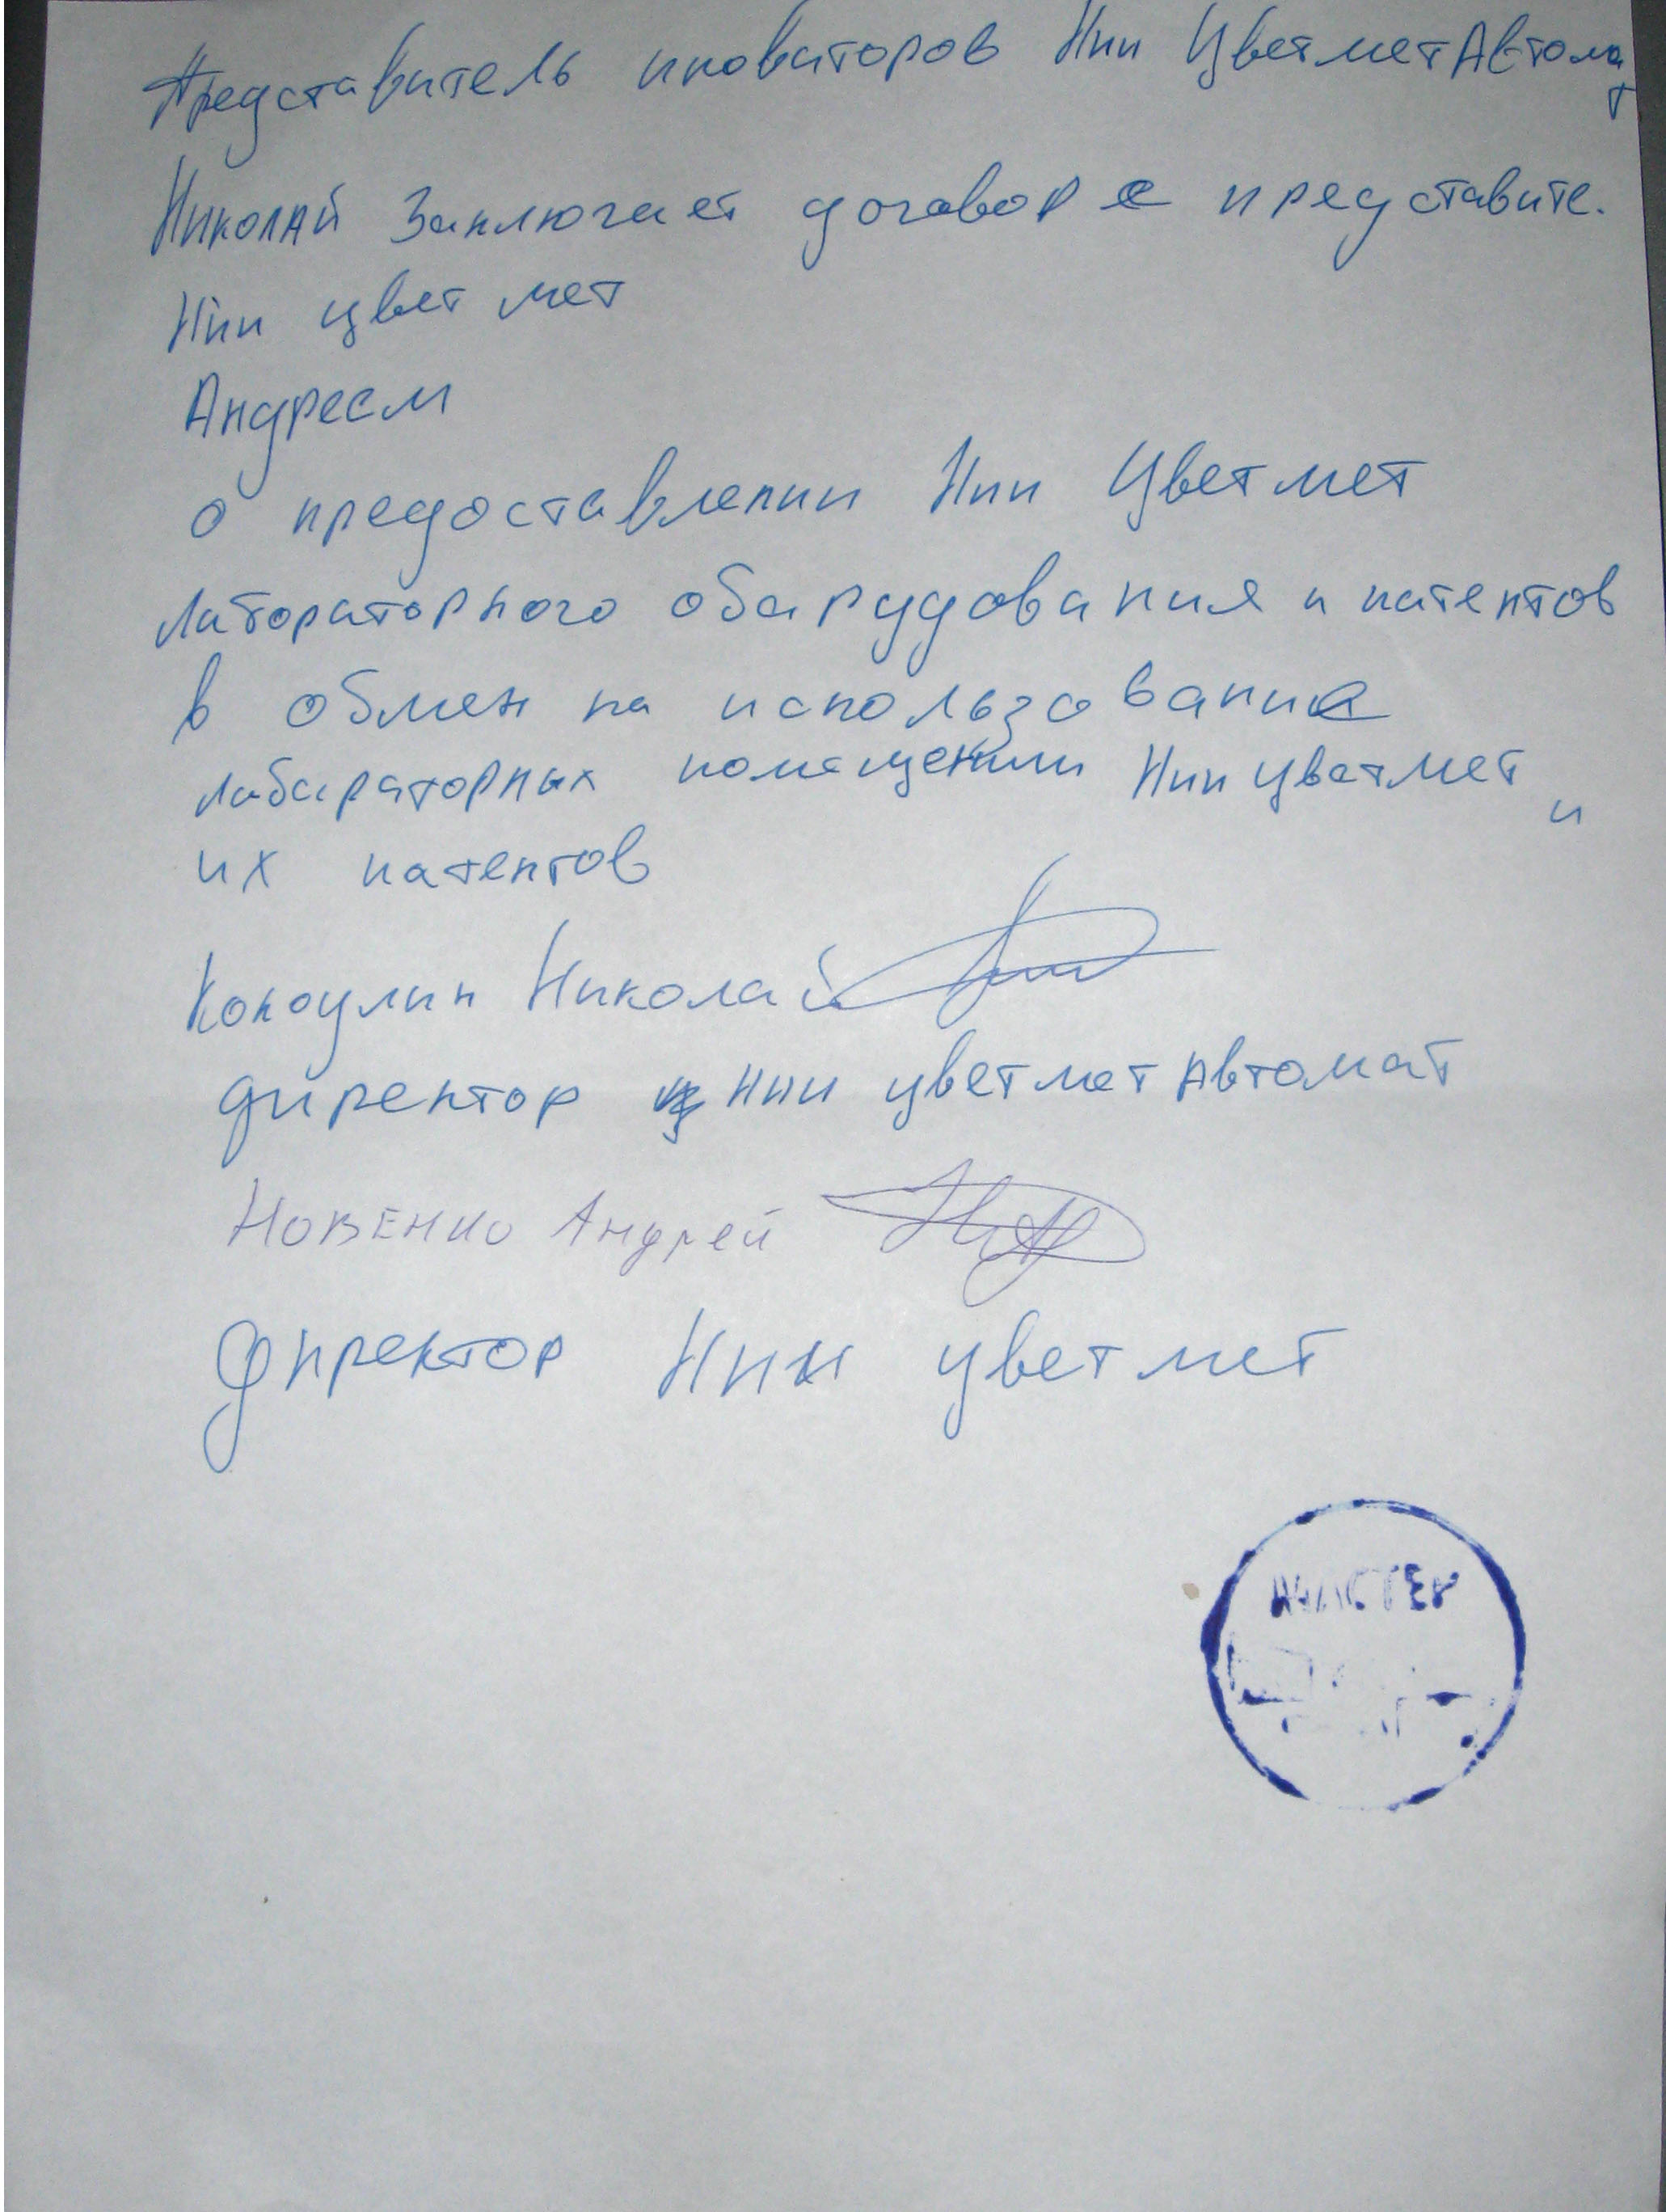 Представитель иноваторов Нии ЦветметАвтомат
Николай Заключает договор с представите.
Нии цвет мет
Андреем
о предоставлении Нии Цветмет
Лабораторного обарудования и патентов
в обмен на использование
лабараторных помещений Нии цветмет и
их патентов
Николай
директор Нии цветмет Автомат
Новенко Андрей
Директор Нии цветмет